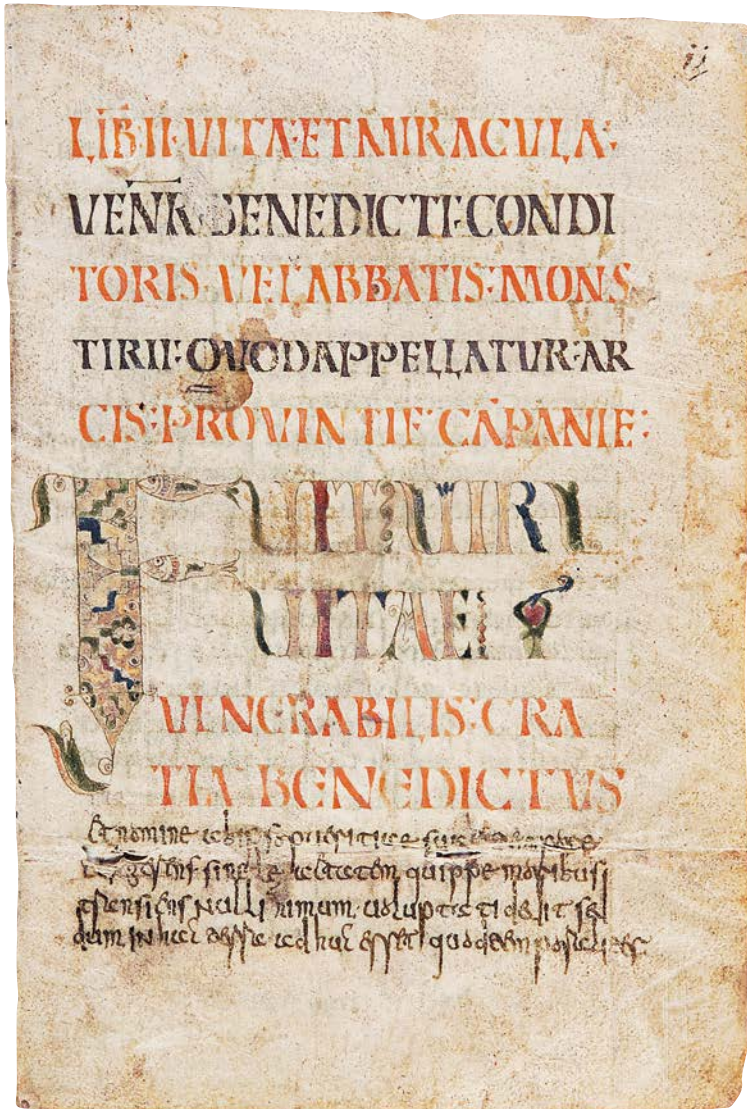 ij
LIB·II·UITA·ET MIRACULA:
VENR BENEDICTI·CONDI
TORIS·VEL ABBATIS·MONS
TIRII·QUOD APPELLATUR·AR
CIS:PROVINTIE·CAPANIE:
FUIT UIR
UITAE
VENERABILIS·GRA
TIA BENEDICTUS
Et nomine ab ipso pueritiae suae
gerens senile aetatem quippe moribus
transiens nulli animum uoluptati dedit sed
dum in hac adhuc esset